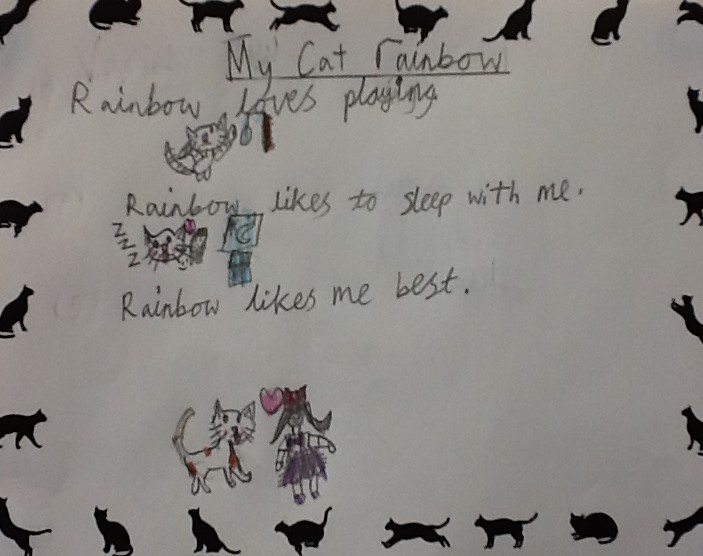 My Cat rainbow
Rainbow loves playing
Rainbow likes to sleep with me.
z z z z
Rainbow likes me best.